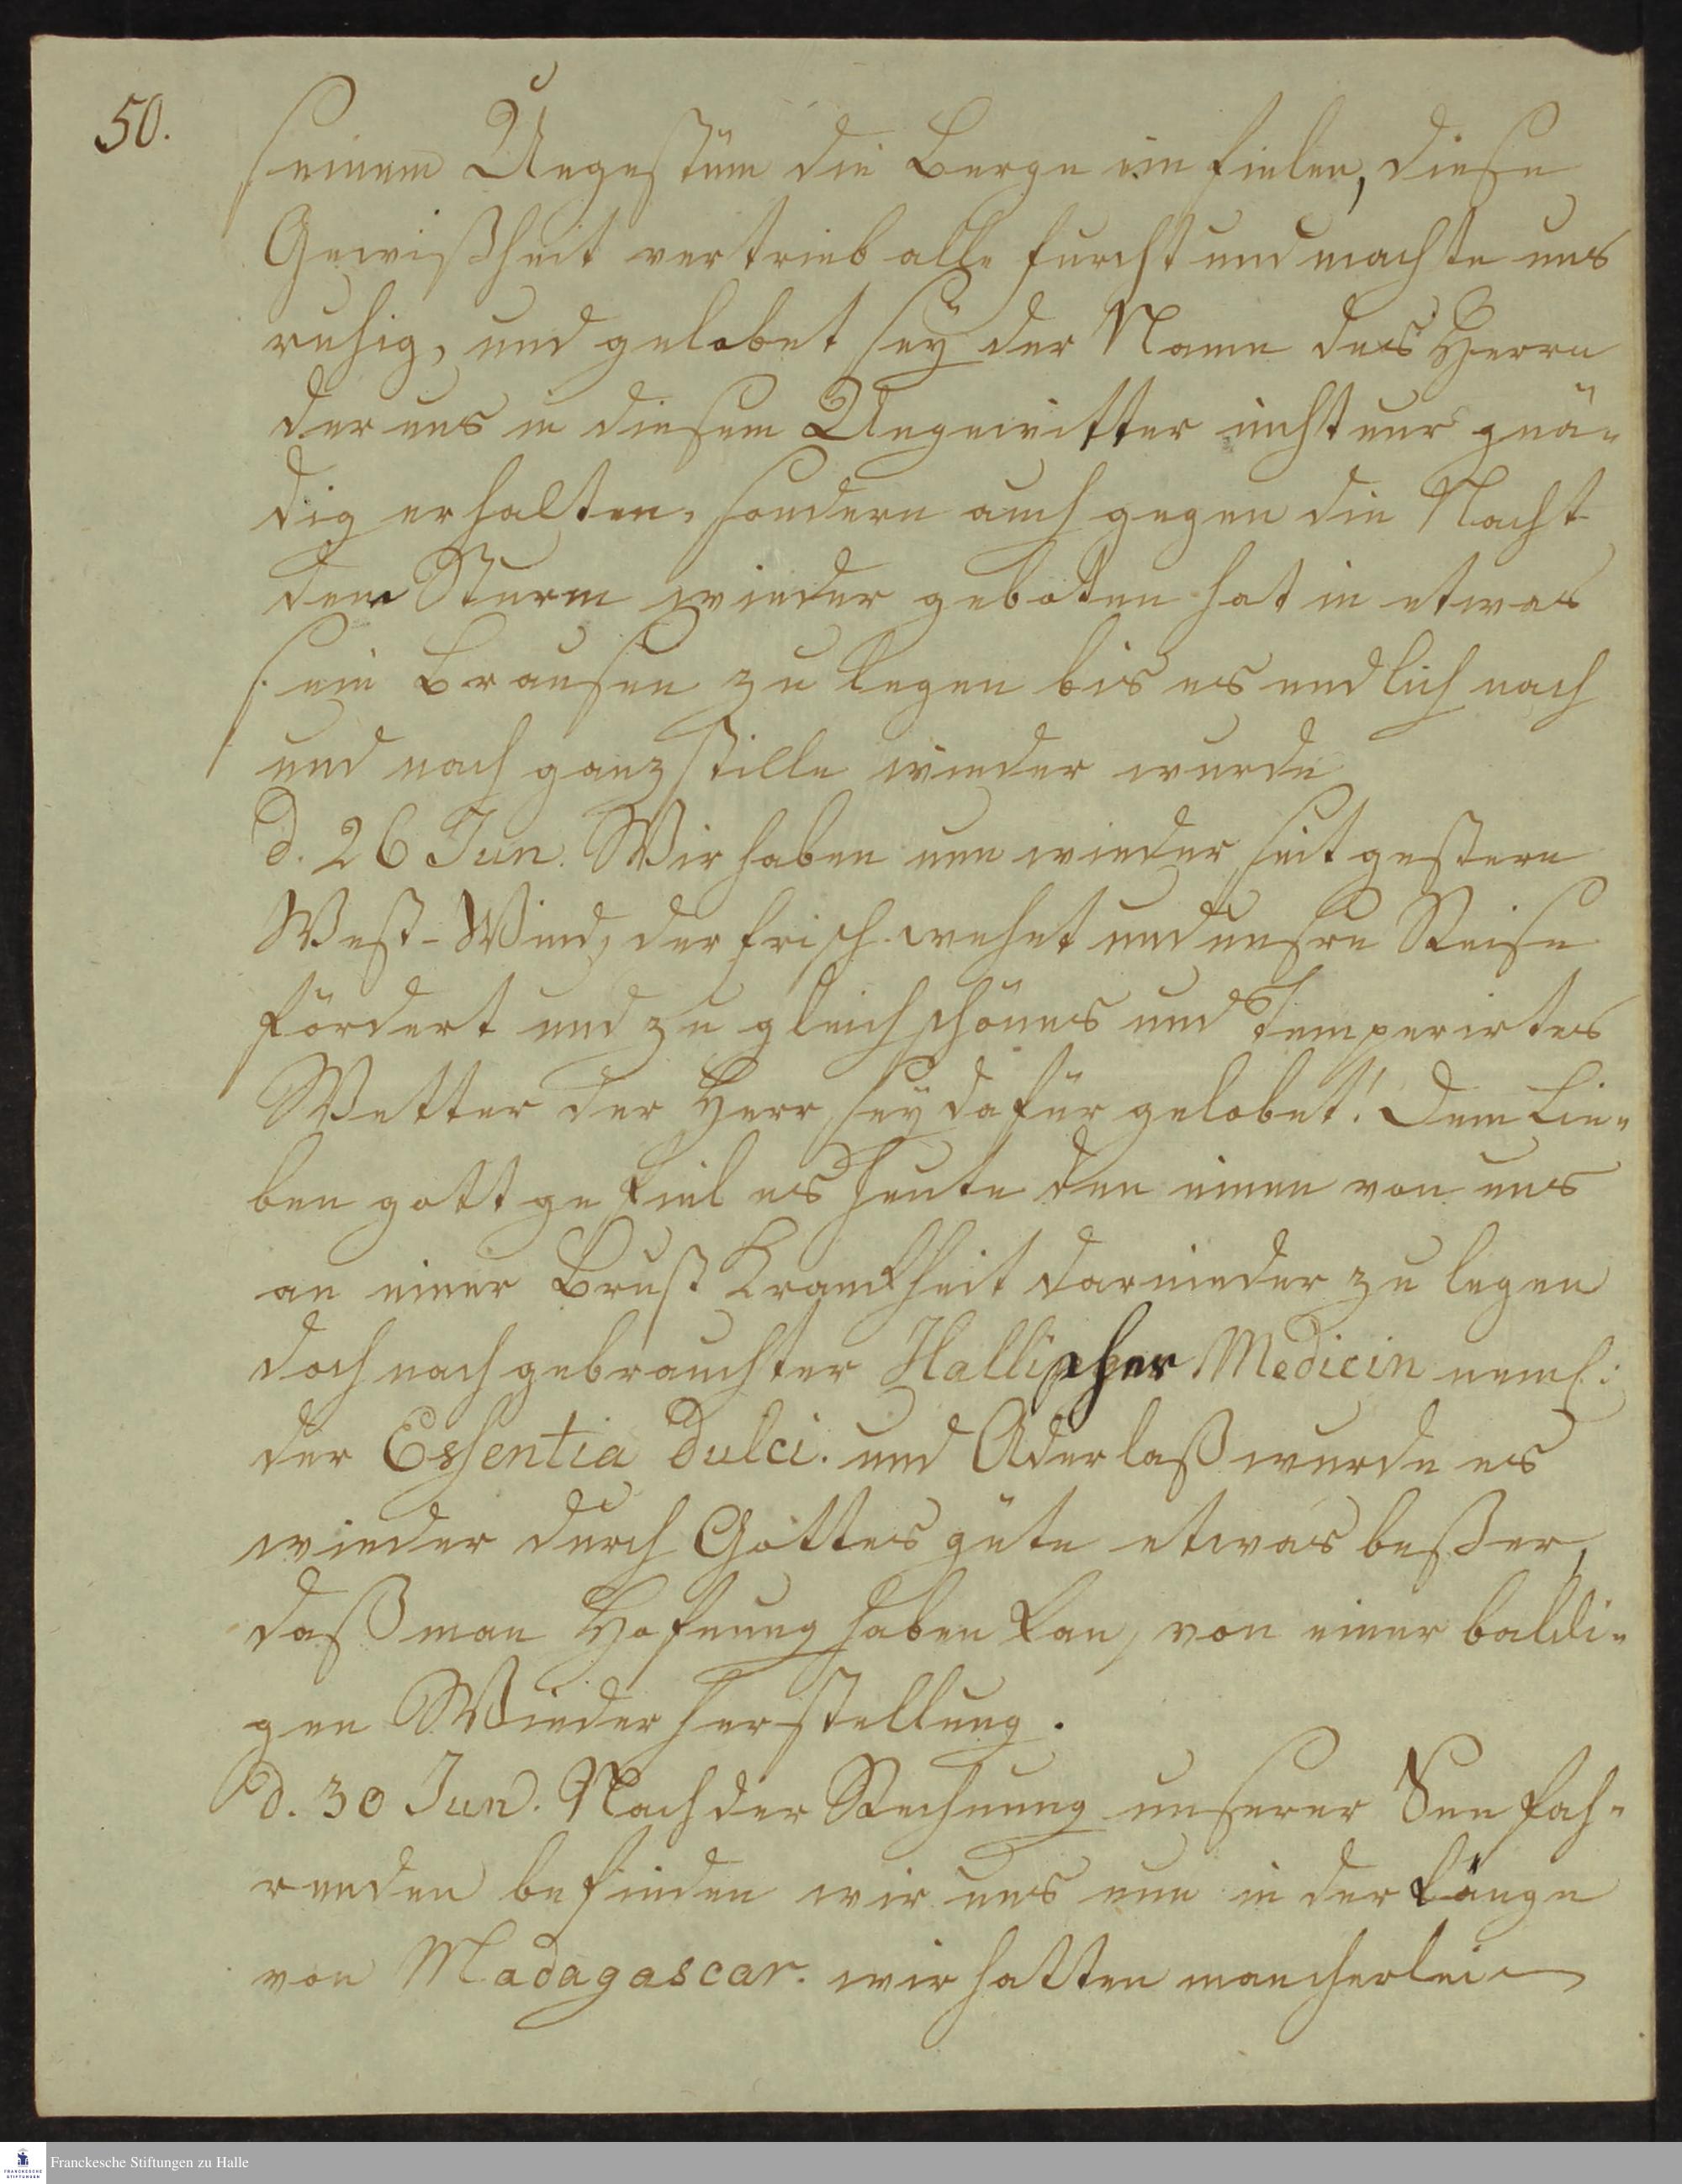 50.
seinem Ungestüm die Berge ein fielen, diese
Gewißheit vertrieb alle furcht und machte uns
ruhig, und gelobet sey der Name des Herrn
der uns in diesem Ungewitter nicht nur gnä-
dig erhalten, sondern auch gegen die Nacht
dem Sturm wieder geboten hat in etwas
sein Brausen zu legen bis es endlich nach
und nach ganz stille wieder wurde
d. 26 Jun. Wir haben nun wieder seit gestern
West-Wind, der frisch wehet und unsre Reise
fördert und zu gleich schönes und Temperirtes
Wetter der Herr sey dafür gelobet! Dem Lie-
ben gott gefiel es heute den einen von uns
an einer Brust Kranckheit darnieder zu legen
doch nach gebrauchter Hallischer Medicin neml:
der Essentia Dulci. und Aderlaß wurde es
wieder durch Gottes güte etwas beßer,
daß man Hofnung haben kan, von einer baldi-
gen Wieder herstellung.
d. 30 Jun. Nach der Rechnung unserer See fah-
renden befinden wir uns nun in der Länge
von Madagascar. wir hatten mancherlei
Franckesche Stiftungen zu Halle